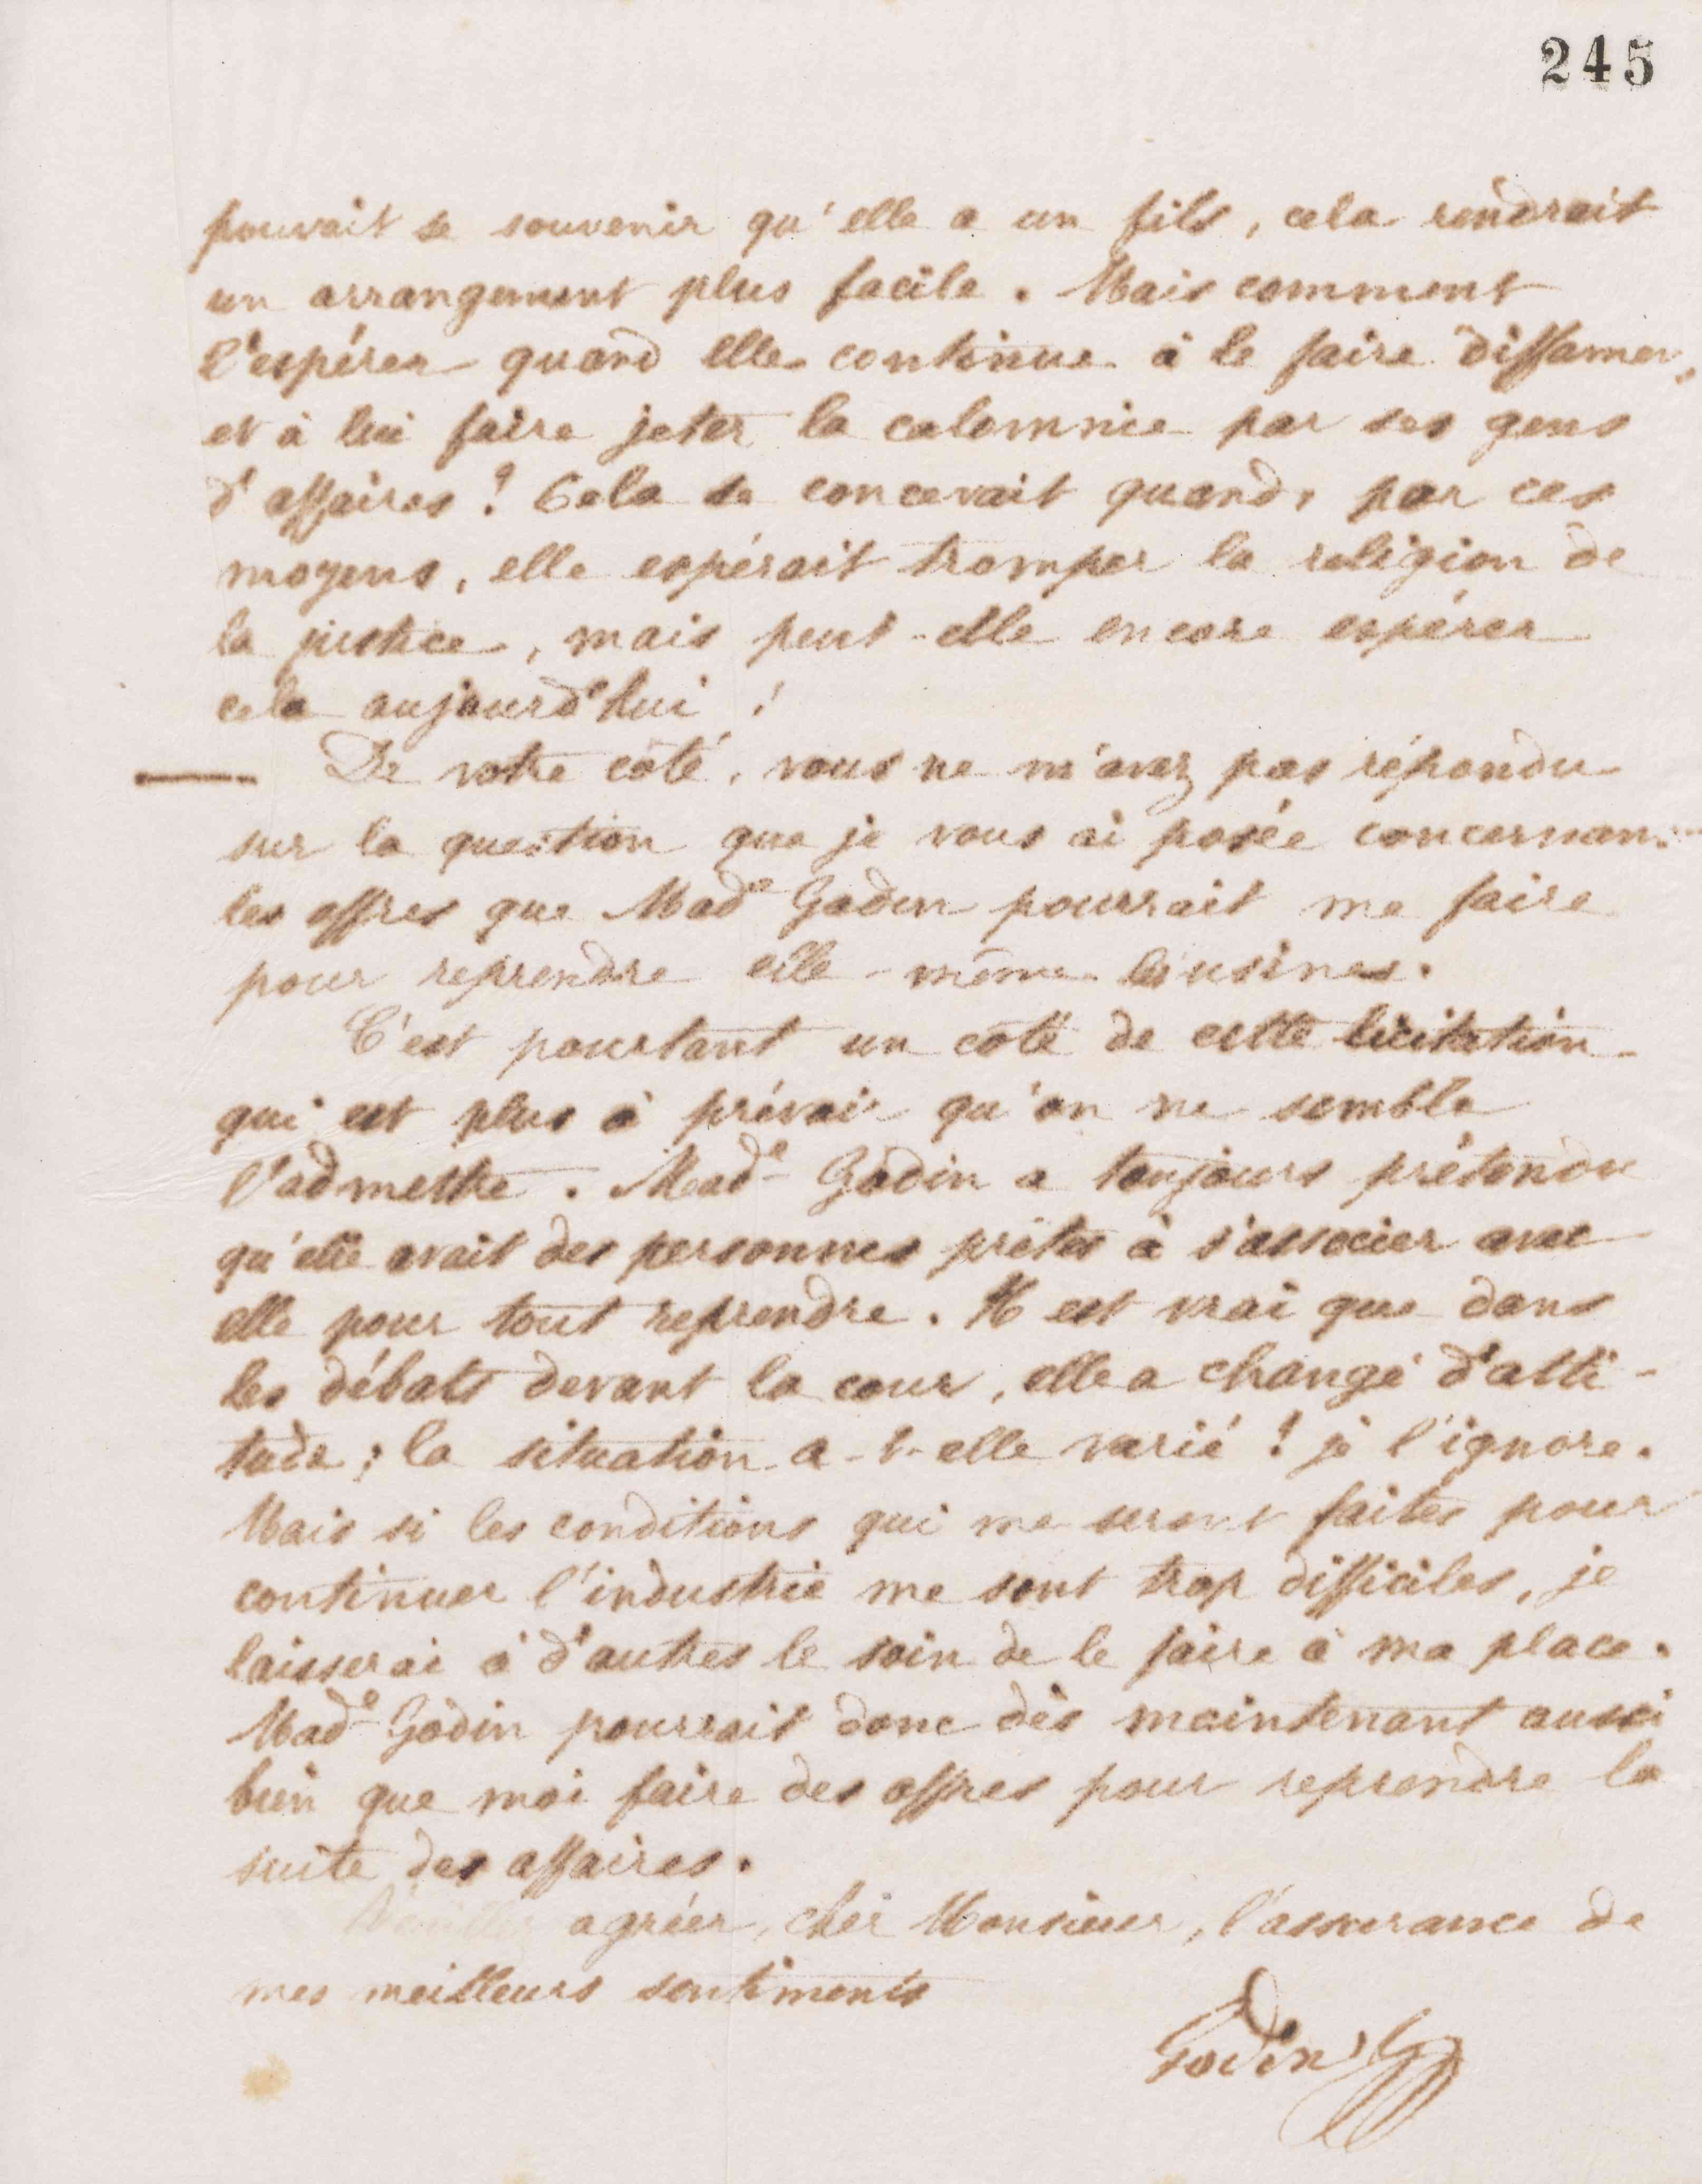 245
pouvait se souvenir qu'elle a un fils, cela rendrait
un arrangement plus facile. Mais comment
l'espérer quand elle continue à le faire diffamer,
et à lui faire jeter la calomnie par ses gens
d'affaires ! Cela se concevait quand, par ces
moyens, elle espérait tromper la religion de
la justice, mais peut-elle encore espérer
cela aujourd'hui !
— De votre côté, vous ne m'avez pas répondu
sur la question que je vous ai posée concernan
les offres que Made Godin pourrait me faire
pour reprendre elle-même les usines.
C'est pourtant un côté de cette licitation
qui est plus à prévoir qu'on ne semble
l'admettre. Made Godin a toujours prétendu
qu'elle avait des personnes prêtes à s'associer avec
elle pour tout reprendre. Il est vrai que dans
les débats devant la cour, elle a changé d'atti-
tude ; la situation a-t-elle varié ! je l'ignore.
Mais si les conditions qui me seront faites pour
continuer l'industrie me sont trop difficiles, je
laisserai à d'autres le soin de le faire à ma place.
Made Godin pourrait donc dès maintenant aussi
bien que moi faire des offres pour reprendre la
suite des affaires.
Veuillez agréer, cher Monsieur, l'assurance de
mes meilleurs sentiments
Godin